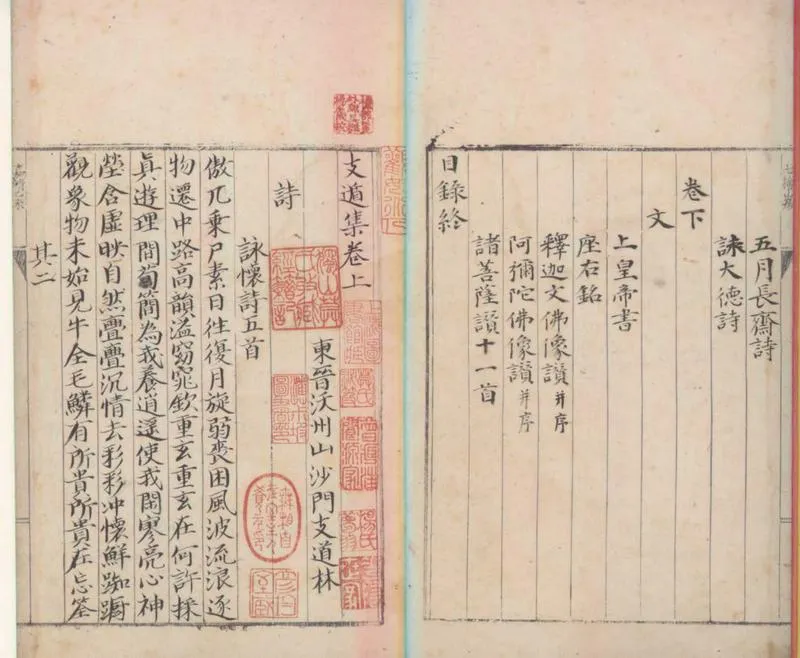 五月長齋詩
詠大德詩
卷下
文
上皇帝書
座右銘
釋迦文佛像讚并序
阿彌陀佛像讚并序
諸菩薩讚十一首
目錄終
支遁集卷上
東晉沃州山沙門支道林
詩
詠懷詩五首
傲兀乘尸素日往復月旋弱喪困風波流浪逐
物遷中路高韻溢窈窕欽重玄重玄在何許採
真遊理間苟簡為我養逍遙使我閑寥亮心神
瑩含虛映自然亹亹沉情去彩彩冲懷鮮踟躕
觀象物未始見牛全毛鱗有所貴所貴在忘筌
其二